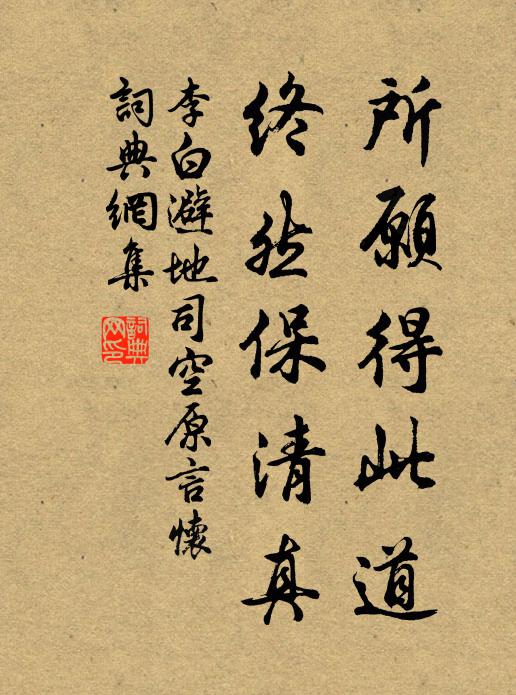 所願得此道
終然保清真
李白避地司空原言懷
詞典網集
詞典網印